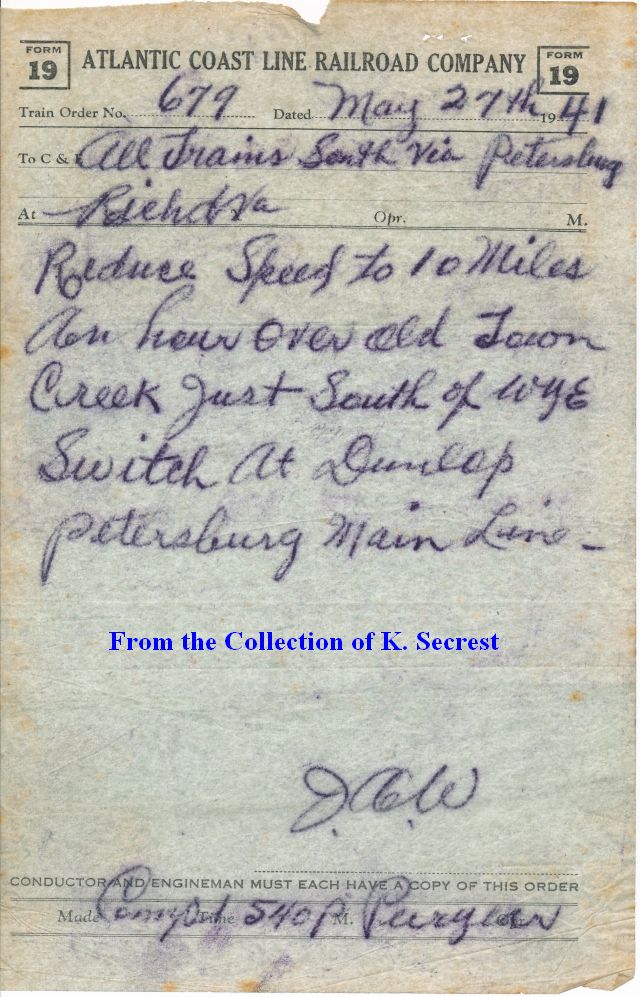 FORM 19 ATLANTIC COAST LINE RAILROAD COMPANY FORM 19
Train Order No. 679 Dated May 27th 1941
To C & E All Trains South Via Petersburg
At Richd Va Opr. M.
Reduce Speed to 10 Miles
An hour Over Old Town
Creek Just South of WYE
Switch At Dunlop
Petersburg Main Line -
From the Collection of K. Secrest
J.C.W
CONDUCTOR AND ENGINEMAN MUST EACH HAVE A COPY OF THIS ORDER
Made Compld Time 540 P M.